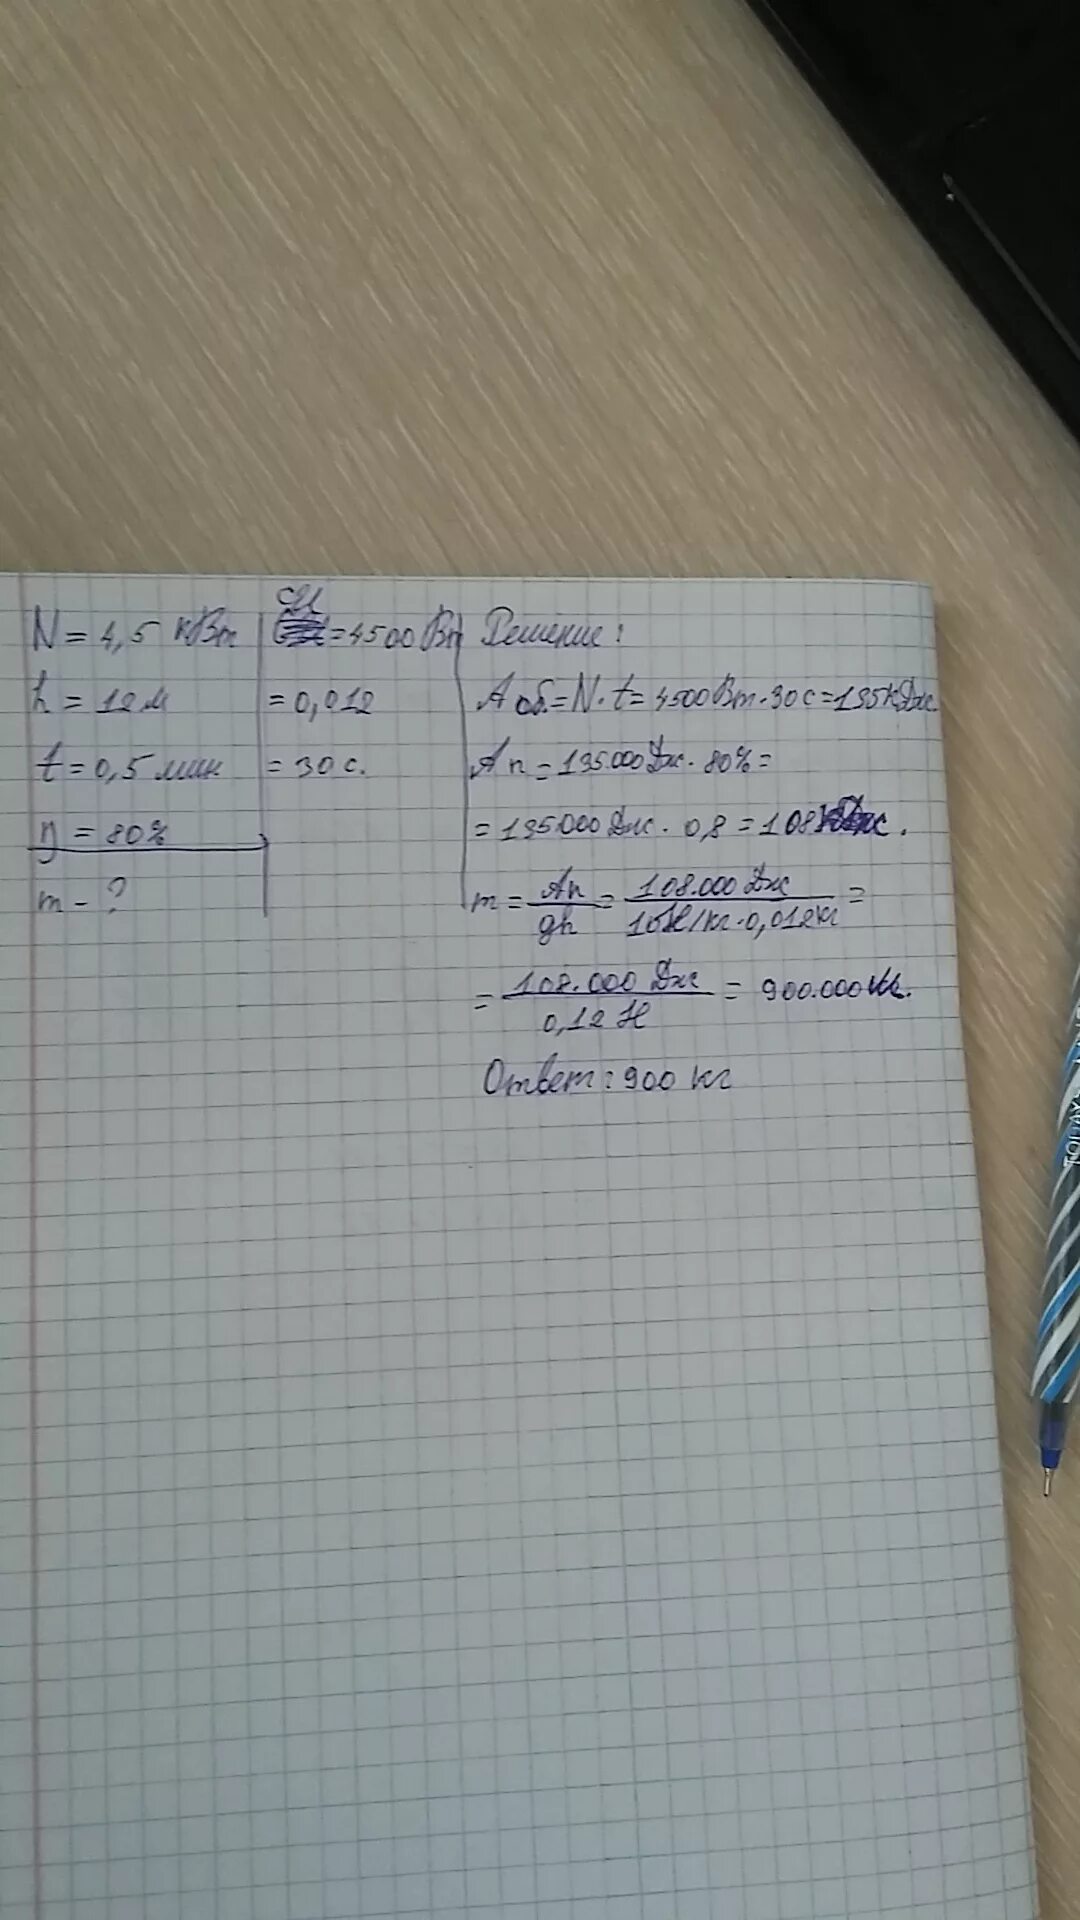 N = 4,5 кВт
h = 12 м
t = 0,5 мин
η = 80%
m - ?
СИ
= 4500 Вт
= 0,012
= 30 с.
Решение:
A об. = N · t = 4500 Вт · 30 с = 135 кДж.
A п = 135.000 Дж · 80% =
= 135.000 Дж · 0,8 = 108 кДж.
m = Aп/gh = 108.000 Дж/10 Н/кг · 0,012 кг =
= 108.000 Дж/0,12 Н = 900.000 кг.
Ответ: 900 кг
TODAYS